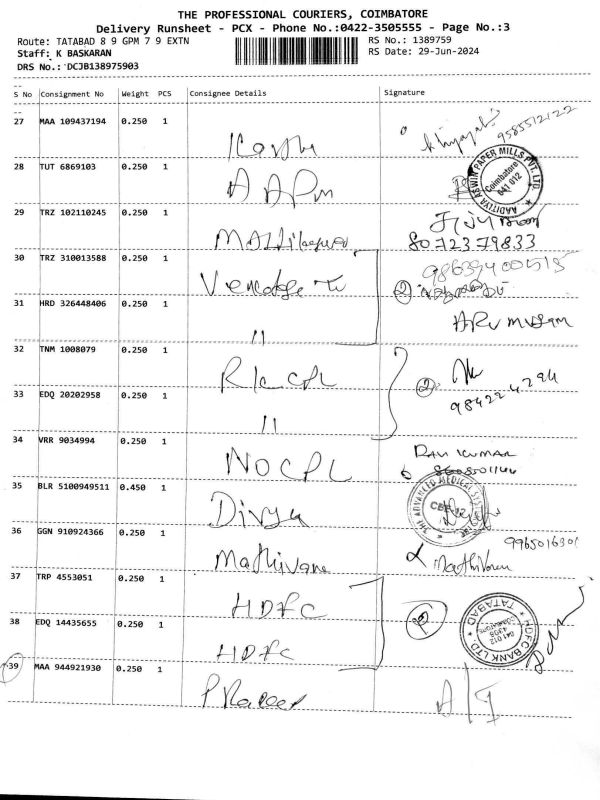 THE PROFESSIONAL COURIERS, COIMBATORE
Delivery Runsheet - PCX - Phone No.:0422-3505555 - Page No.:3
Route: TATABAD 8 9 GPM 7 9 EXTN
RS No.: 1389759
Staff: K BASKARAN
RS Date: 29-Jun-2024
DRS No.: DCJB138975903
S No Consignment No Weight PCS Consignee Details Signature
27 MAA 109437194 0.250 1
9585512122
28 TUT 6869103 0.250 1
AADITIYA ASWIN PAPER MILLS PVT. LTD.
Coimbatore
641 012
29 TRZ 102110245 0.250 1
8072379833
30 TRZ 310013588 0.250 1
2
31 HRD 326448406 0.250 1 "
ARUMUGAM
32 TNM 1008079 0.250 1
2
984224294
33 EDQ 20202958 0.250 1 "
34 VRR 9034994 0.250 1 NOCPL
RAVI KUMAR
35 BLR 5100949511 0.450 1 Divya
THE ADVANCED MEDICAL SYSTEMS
CBE-12
36 GGN 910924366 0.250 1 Mathivana
9965016301
Mathivanan
37 TRP 4553051 0.250 1 HDFC
HDFC BANK LTD.
TATABAD
641 012
38 EDQ 14435655 0.250 1 HDFC
39 MAA 944921930 0.250 1